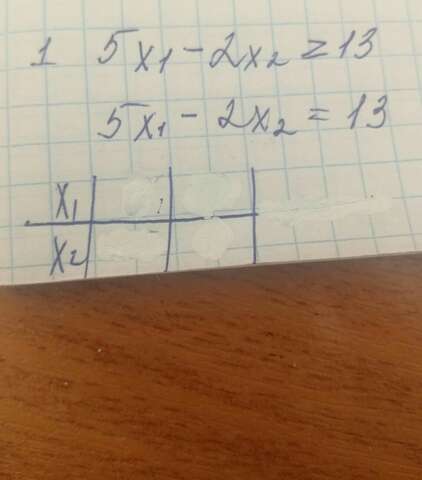 1 5x₁ - 2x₂ ≥ 13
5x₁ - 2x₂ = 13
x₁
x₂